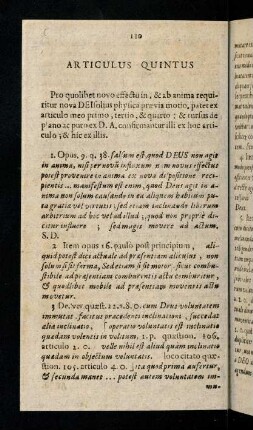 110
ARTICULUS QUINTUS
Pro quolibet novo effectu in, & ab anima requi-
ritur nova DEI solius physica prævia motio, patet ex
articulo meo primo, tertio, & quarto; & rursus de
plano ac puro ex D. A. confirmantur illi ex hoc arti-
culo; & hic ex illis.
1. Opus. 9. q. 38. falsum est, quod DEUS non agit
in anima, nisi per novũ influxum
potest provenire in anima ex nova dispositione reci-
pientis... manifestum est enim, quod Deus agit in
anima non solum causando in ea aliquem habitum pu-
ta gratiæ vel virtutis, sed etiam inclinando liberum
arbitrium ad hoc vel ad illud; quod non proprie di-
citur influere; sed magis movere ad actum.
S.D.
2. Item opus 16. paulo post principium, ali-
quid potest dici actuale ad præsentiam alicujus, non
solum si sit forma, sed etiam si sit motor. sicut combu-
stibile ad præsentiam comburentis actu comburitur,
& quodlibet mobile ad præsentiam moventis actu
movetur.
3 De ver. quæst. 22. a. 8. o. cum Deus voluntatem
immutat facit ut præcedenti inclinationi, succedat
alia inclinatio, operatio voluntatis est inclinatio
quædam volentis in volitum, 1. p. quæstion.
articulo 2. o. velle nihil est aliud quam inclinatio
quædam in objectum voluntatis. loco citato quæ-
stion. 105. articulo 4. o. ita quod prima auferatur,
& secunda manet... potest autem voluntatem im-
mu-